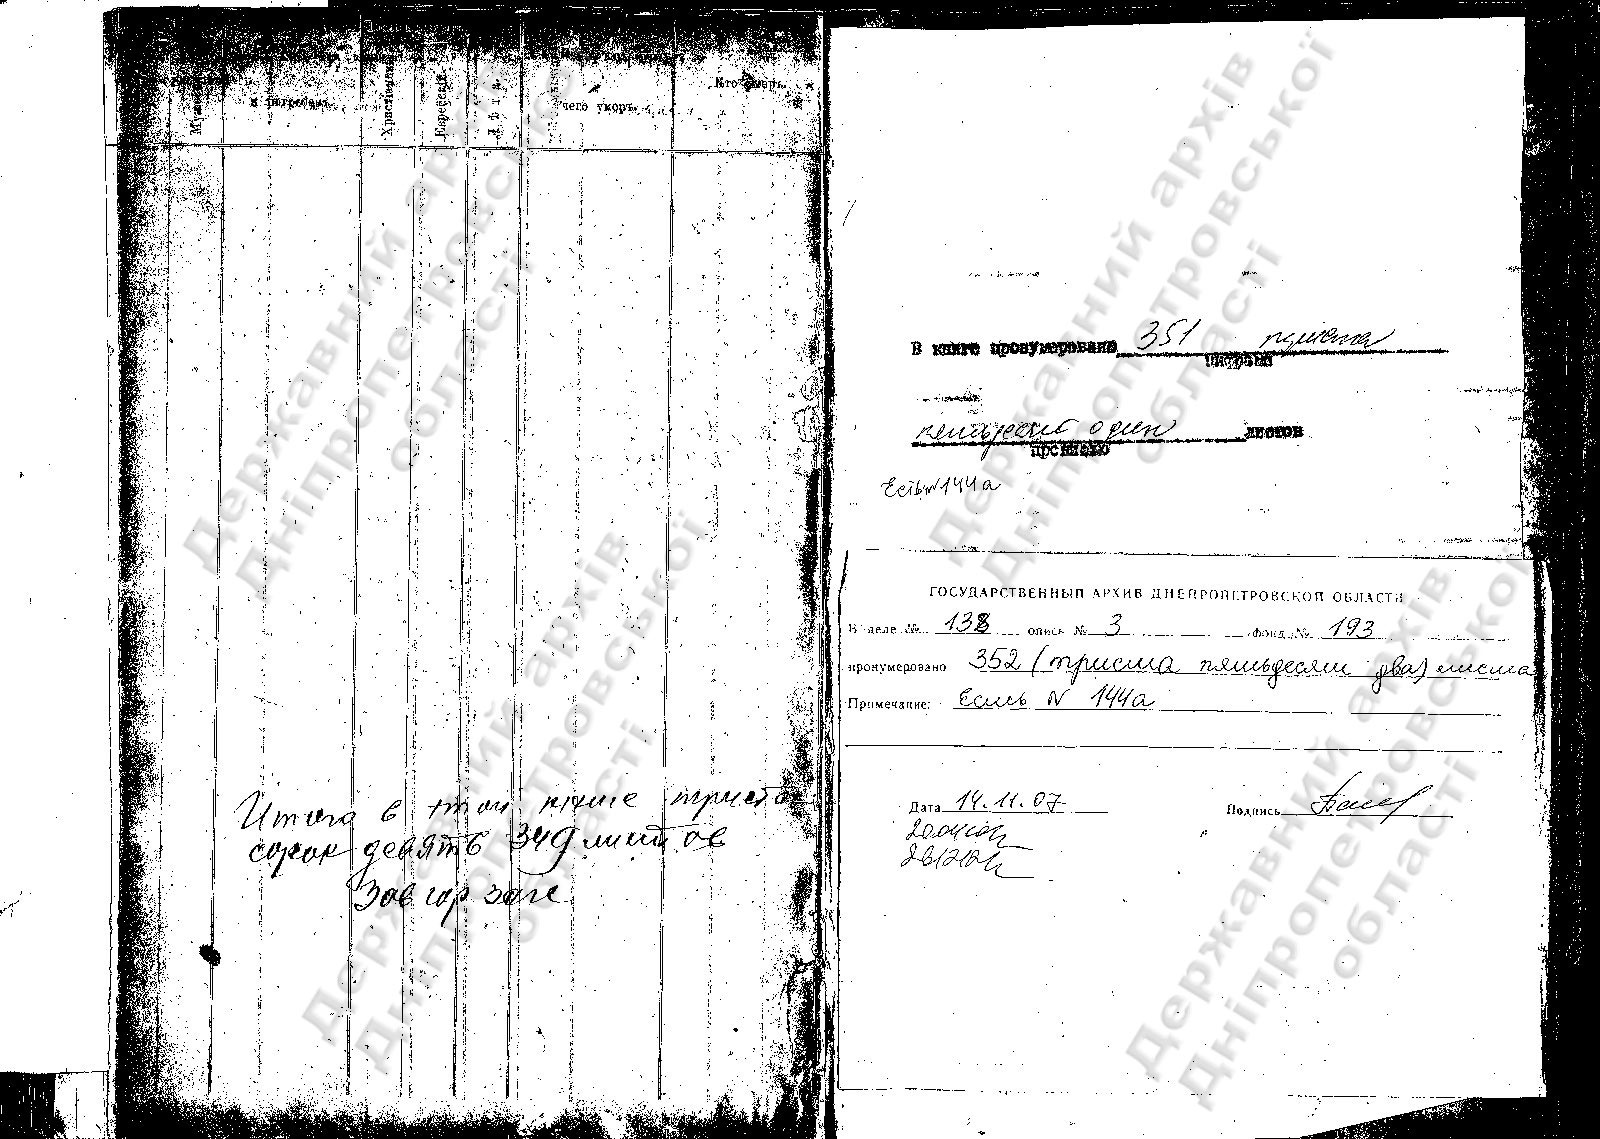 и погребен.
Христианский
Еврейский
Лѣта
чего умеръ
Кто
Итого в этой книге триста
сорок девять 349 листов
Зав гор загс
В книге пронумеровано 351 триста
цифрами
пятьдесят один листов
прописью
Есть N 144а
ГОСУДАРСТВЕННЫЙ АРХИВ ДНЕПРОПЕТРОВСКОЙ ОБЛАСТИ
В деле № 138 опись № 3 фонд № 193
пронумеровано 352 (триста пятьдесят два) листа
Примечание: Есть N 144а
Дата 14.11.07 Подпись
Державний архів
Дніпропетровської
області
Державний архів
Дніпропетровської
області
Державний архів
Дніпропетровської
області
Державний архів
Дніпропетровської
області